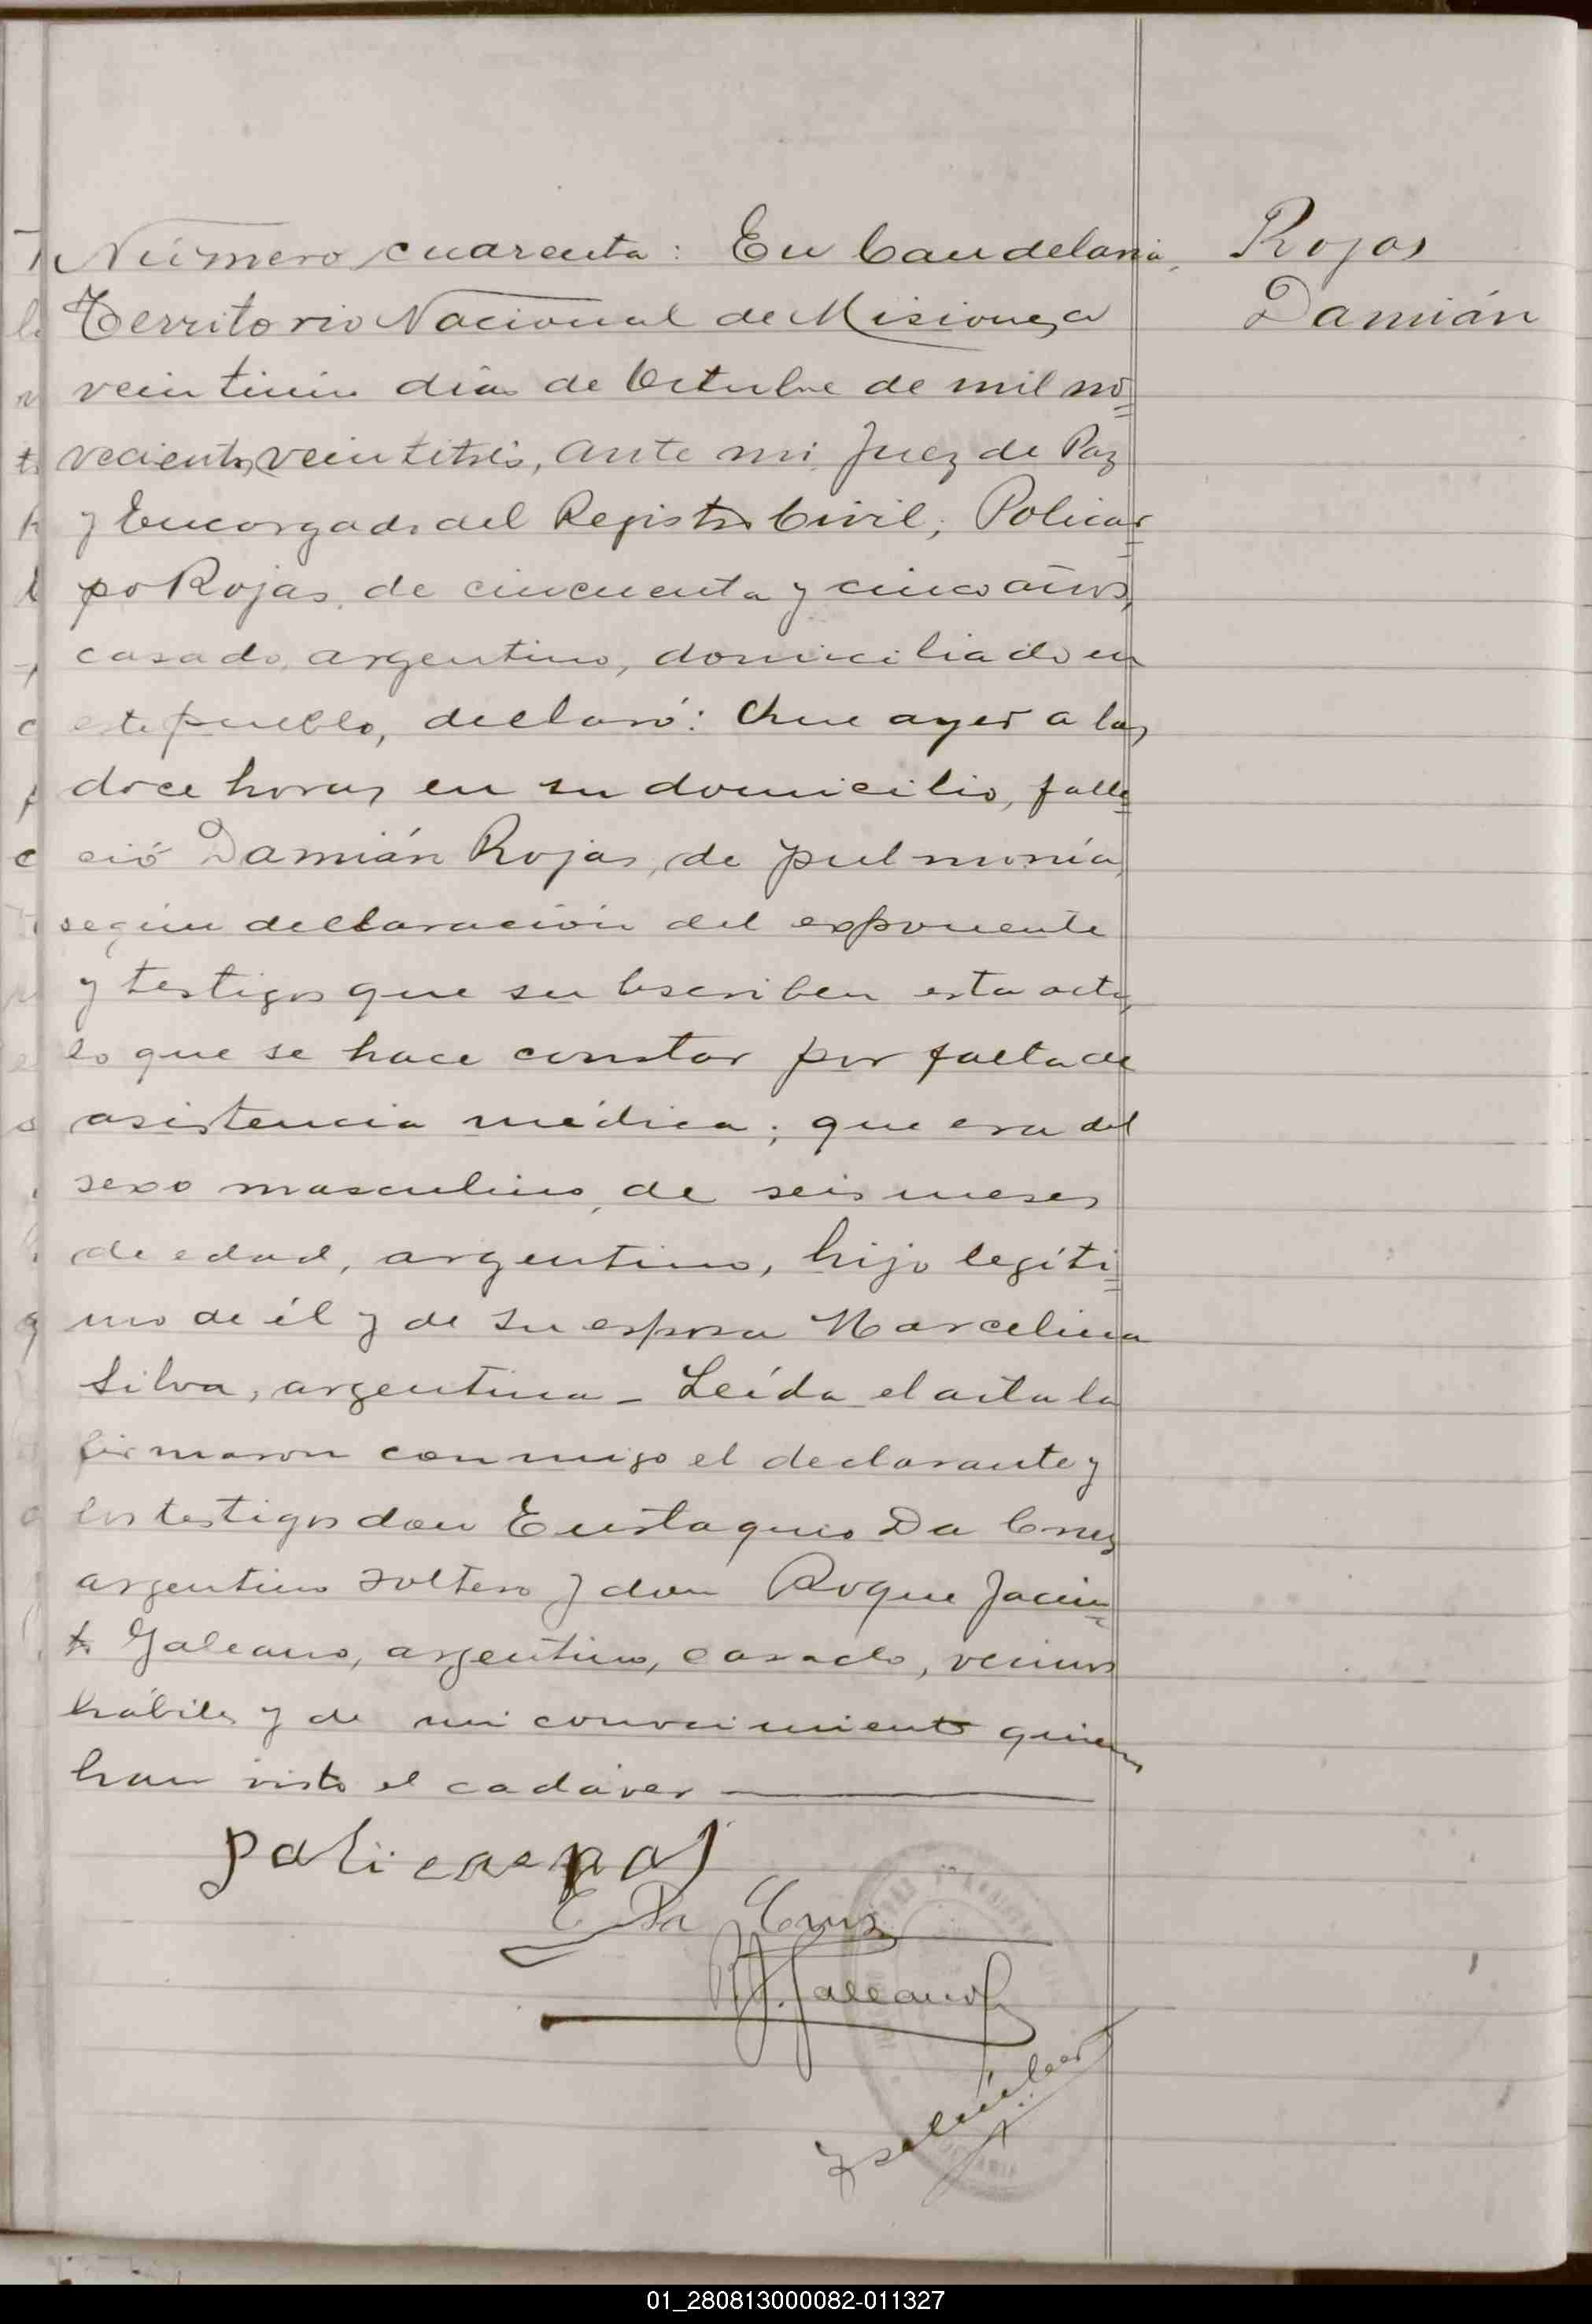 Número cuarenta: En Candelaria,
Territorio Nacional de Misiones, a
veintiún días de Octubre de mil no=
vecientos veintitrés, ante mi Juez de Paz
y Encargado del Registro Civil, Policar=
po Rojas, de cincuenta y cinco años,
casado, argentino, domiciliado en
este pueblo, declaró: Que ayer a las
doce horas en su domicilio, falle=
ció Damián Rojas, de pulmonía,
según declaración del exponente
y testigos que subscriben esta acta,
lo que se hace constar por falta de
asistencia médica; que era del
sexo masculino, de seis meses
de edad, argentino, hijo legíti=
mo de él y de su esposa Marcelina
Silva, argentina _ Leída el acta la
firmaron conmigo el declarante y
los testigos don Eustaquio Da Cruz
argentino soltero y don Roque Jacin=
to Galeano, argentino, casado, vecinos
hábiles y de mi conocimiento quienes
han visto el cadáver
Rojas
Damián
E Da Cruz
R. J. Galeano
01_280813000082-011327